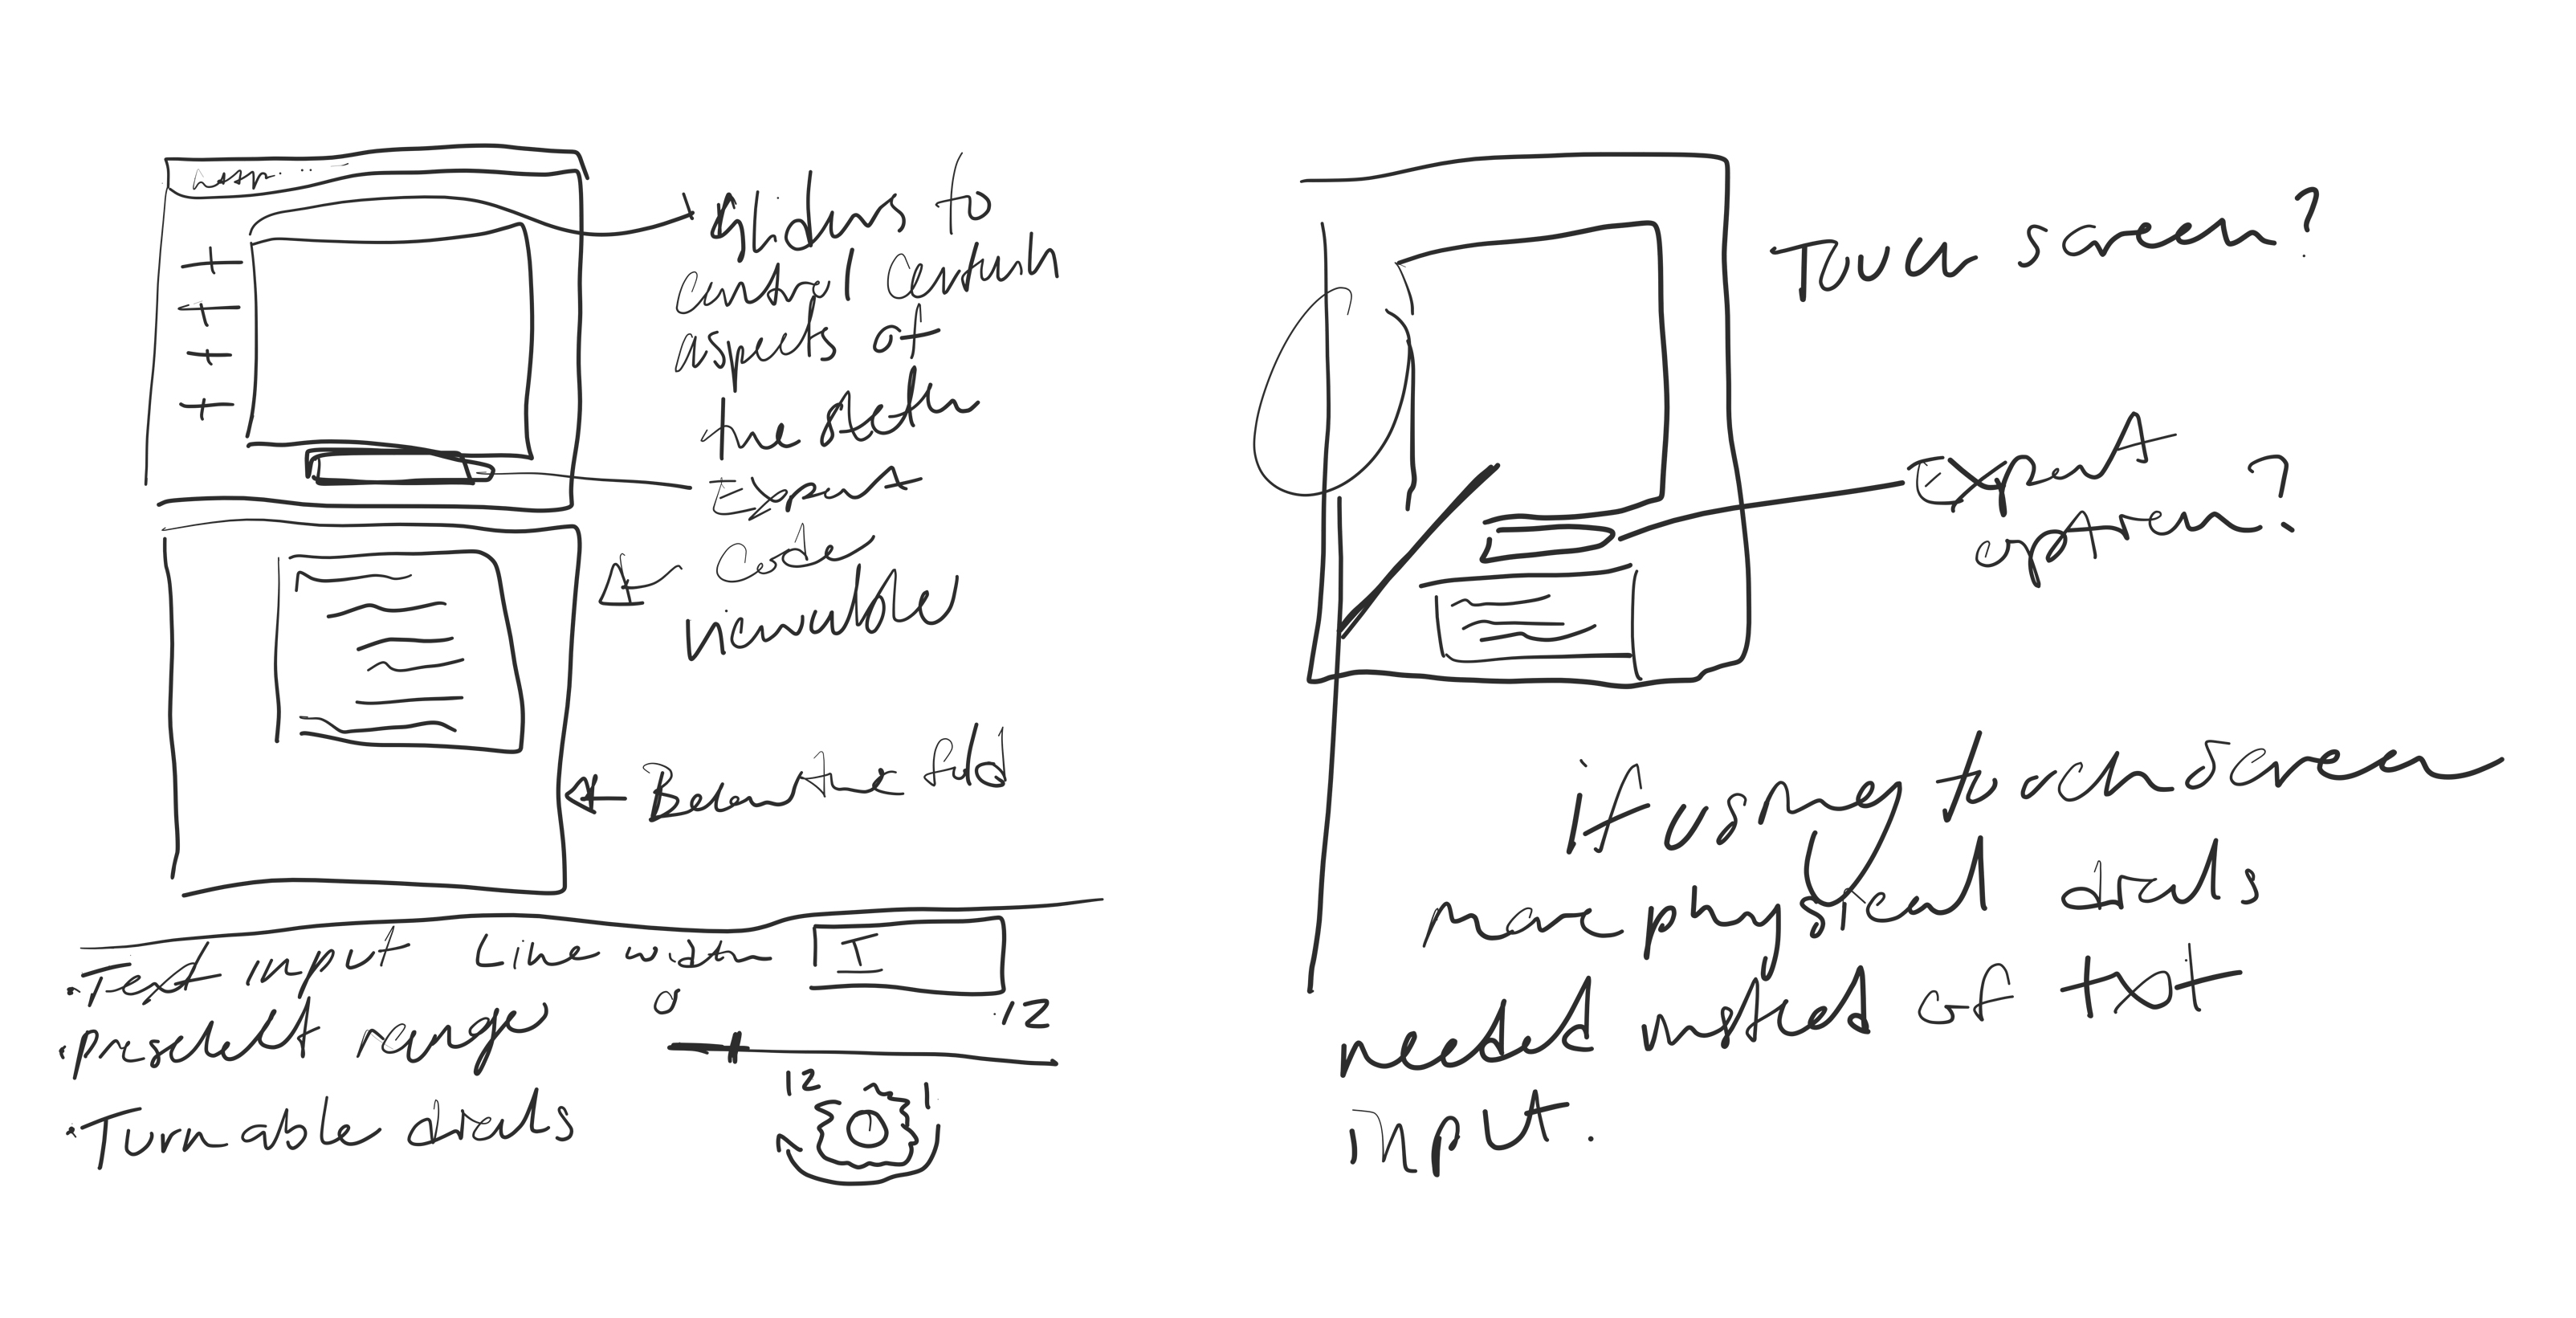 http...
Sliders to
control certain
aspects of
the sketch
Export
Code
viewable
Below the fold
• Text input Line width I
• preselect range 0 12
• Turnable dials 12 1
Touch screen?
Export
option?
if using touch screen
more physical dials
needed instead of txt
input.